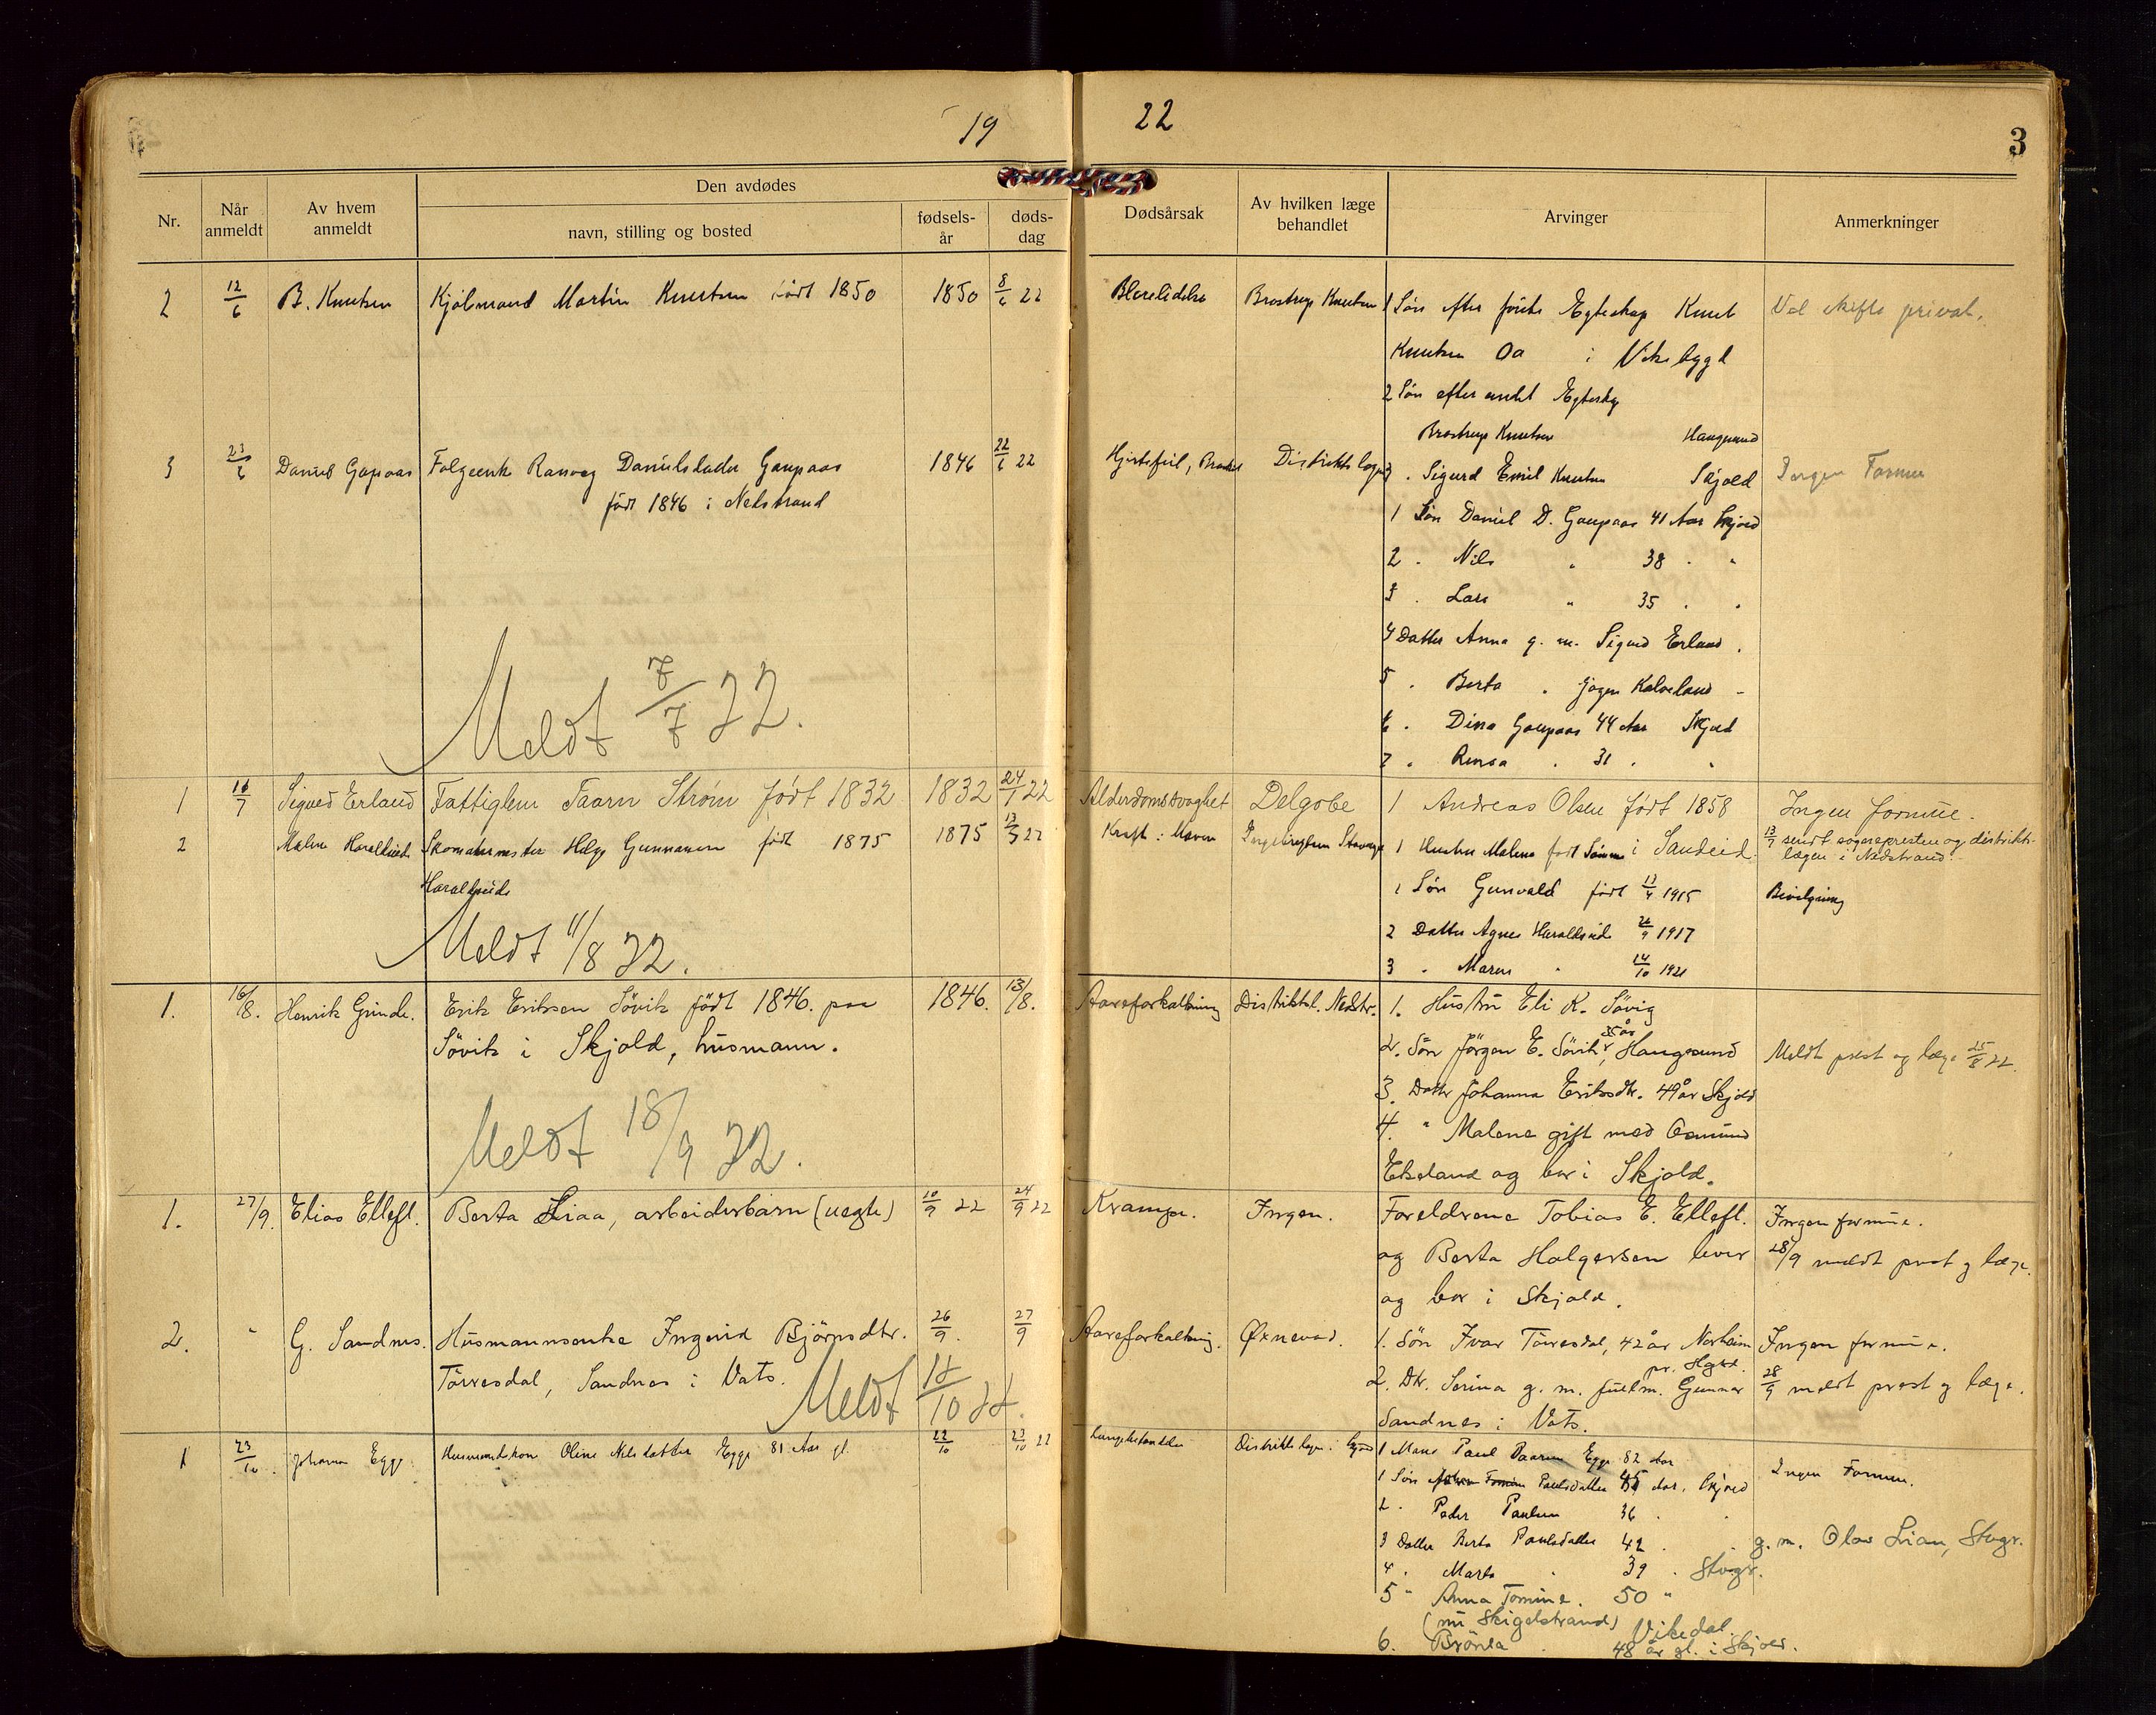 19 22
3
Nr.
Når anmeldt
Av hvem anmeldt
Den avdødes
navn, stilling og bosted
fødsels-år
døds-dag
Dødsårsak
Av hvilken læge behandlet
Arvinger
Anmerkninger
2 12/6 B. Knutsen Kjølmand Martin Knutsen født 1850 1850 8/6 22 Blerelidelse Brostrup Knutsen 1 Søn efter første Egteskap Knut Vil skifte privat.
Knutsen Oa i Viksbygd
2 Søn efter andet Egteskap
Brostrup Knutsen Haugesund
3 23/6 Daniel Gapaas Folgeenk Ranveg Danielsdatter Gaupaas 1846 22/6 22 Hjertefeil, Distriktslægen 3 . Sigurd Emil Knutsen Skjold Ingen Formue
født 1846 i Nedstrand
1 Søn Daniel D. Gaupaas 41 Aar Skjold
2 . Nils " 38 . "
3 . Lars " 35 . "
4 Datter Anna g. m. Sigved Erland .
5 . Berta . Kalveland -
6 . Dina Gaupaas 44 Aar Skjold
7 . Rensa . 31 . "
Meldt 7/7 22.
1 16/7 Sigved Erland Fattiglem Taarn Strøm født 1832 1832 24/1 22 Alderdomsvaghet Delgobe 1 Andreas Olsen født 1858 Ingen formue.
2 Malene Haraldseid Skomakermester Helge Gunnarsen født 1875 1875 13/3 22 Kræft i Maven Ingebrigtsen Stavanger 1 Hustru Malene født Sømme i Sandeid. 13/7 sendt sognepresten og distrikts-
lægen i Nedstrand.
Haraldseide
1 Søn Gunvald født 13/4 1915 Bevilgning
2 Datter Agnes Haraldseide 26/9 1917
3 " Maren " 14/10 1921
Meldt 11/8 22.
1. 16/8. Henrik Grinde. Erik Eriksen Søvik født 1846. paa 1846. 13/8. Aareforkalkning Distriktsl. Nedstr. 1. Hustru Eli K. Søvig
Søvik i Skjold, husmann.
2. Søn Jørgen E. Søvik, 35 år Haugesund Meldt prest og læge 25/8 22.
3. Dattr Johanna Eriksdtr. 49 år Skjold
4. " Malene gift med Osmund
Ekeland og bor i Skjold.
Meldt 18/9 22.
1. 27/9. Elias Ellefs. Berta Liaa, arbeiderbarn (uegte) 10/9 22 24/9 22 Krampe. Ingen. Foreldrene Tobias E. Ellefs. Ingen formue.
og Berta Holgersen lever 28/9 meldt prest og læge.
og bor i Skjold.
2. " G. Sandnes. Husmannsenke Ingerid Bjørnsdtr. 26/9. 27/9 Aareforkalkning. Øxnevad. 1. Søn Ivar Tørresdal, 42 år Norheim Ingen formue.
pr. Hgsd.
Tørresdal, Sandnes i Vats.
2. Dtr. Serina g. m. fullm. Gunnar 28/9 meldt prest og læge.
Sandnes i Vats.
Meldt 12/10 22.
1 23/10. Johannes Egge Husmandskone Oline Nilsdatter Egge 81 Aar gl. 22/10 22/10 22 Lungebetændelse Distriktslægen i Skjold 1 Mand Paul Paarsen Egge 82 Aar Ingen Formue.
1 Søn Paulsdatter 45 Aar, Skjold
2 . Peder Paulsen 36 . "
3 Datter Berta Paulsdatter 42 . . g. m. Olav Lian, Stvgr.
4 . Marta " 39 . Stvgr.
5 " Anna Tomine. 50 "
(nu Skigelstrand) Vikedal.
6. Brønla . 48 år gl. i Skjold.